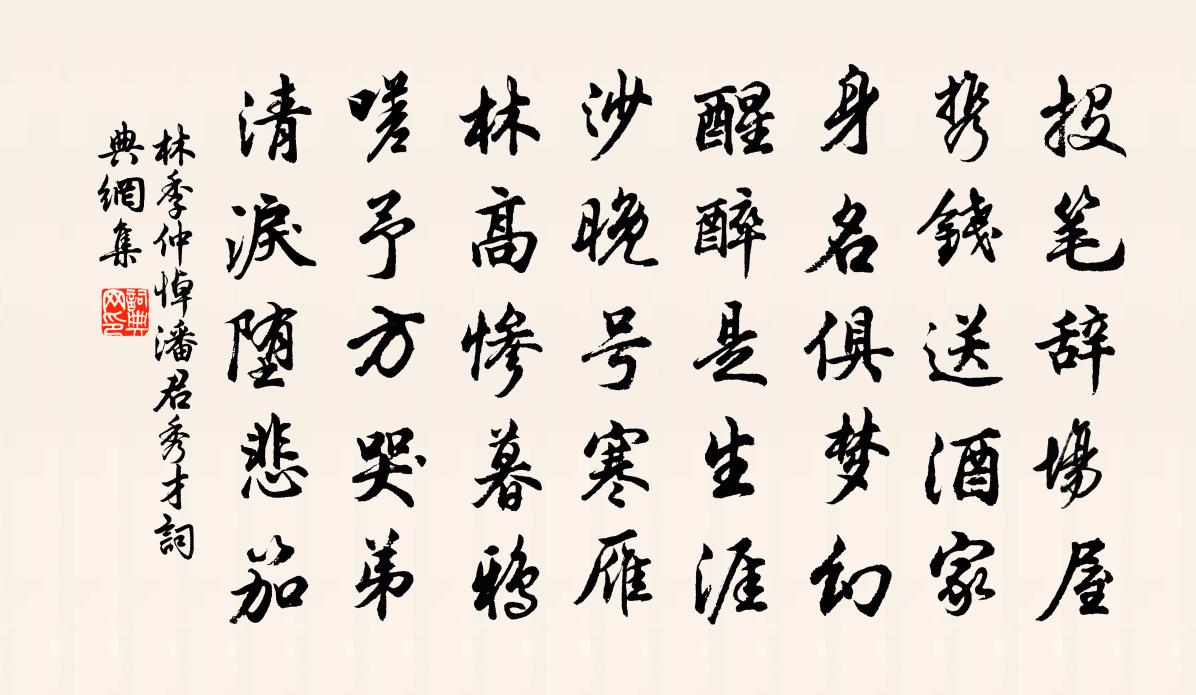 投笔辞場屋
携錢送酒家
身名俱梦幻
醒醉是生涯
沙晚号寒雁
林高惨暮鸦
嗟予方哭弟
清淚堕悲笳
林季仲悼潘君秀才詞
典網集
詞典
网印